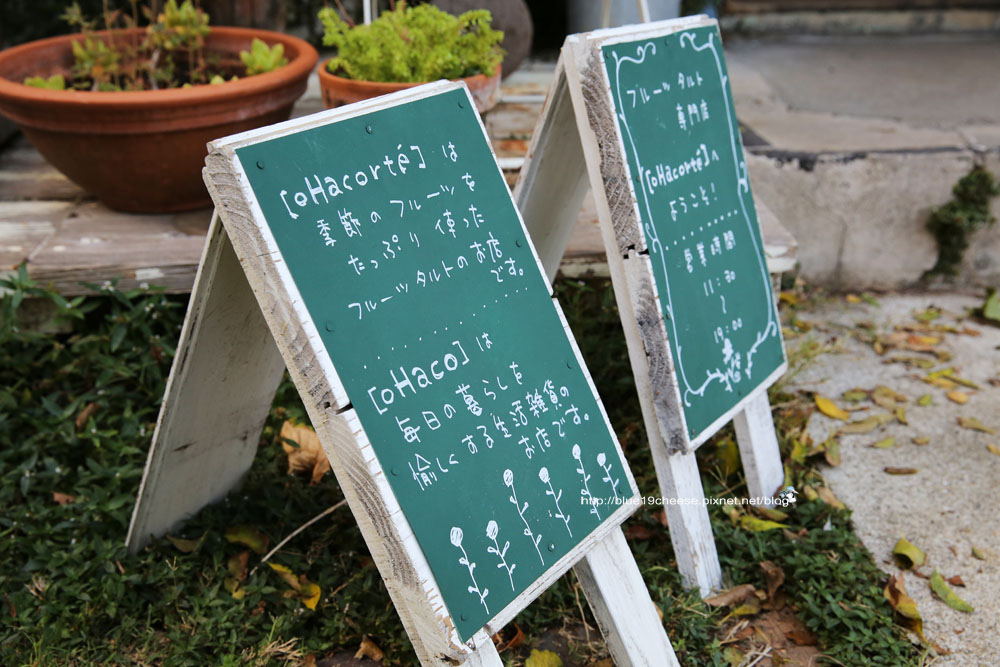 [oHacorté] は
季節のフルーツを
たっぷり使った
フルーツタルトのお店
です。
[oHaco] は
毎日の暮らしを
愉しくする生活雑貨の
お店です。
フルーツタルト
専門店
[oHacorté]へ
ようこそ!
営業時間
11:30
~
19:00
http://blue19cheese.pixnet.net/blog